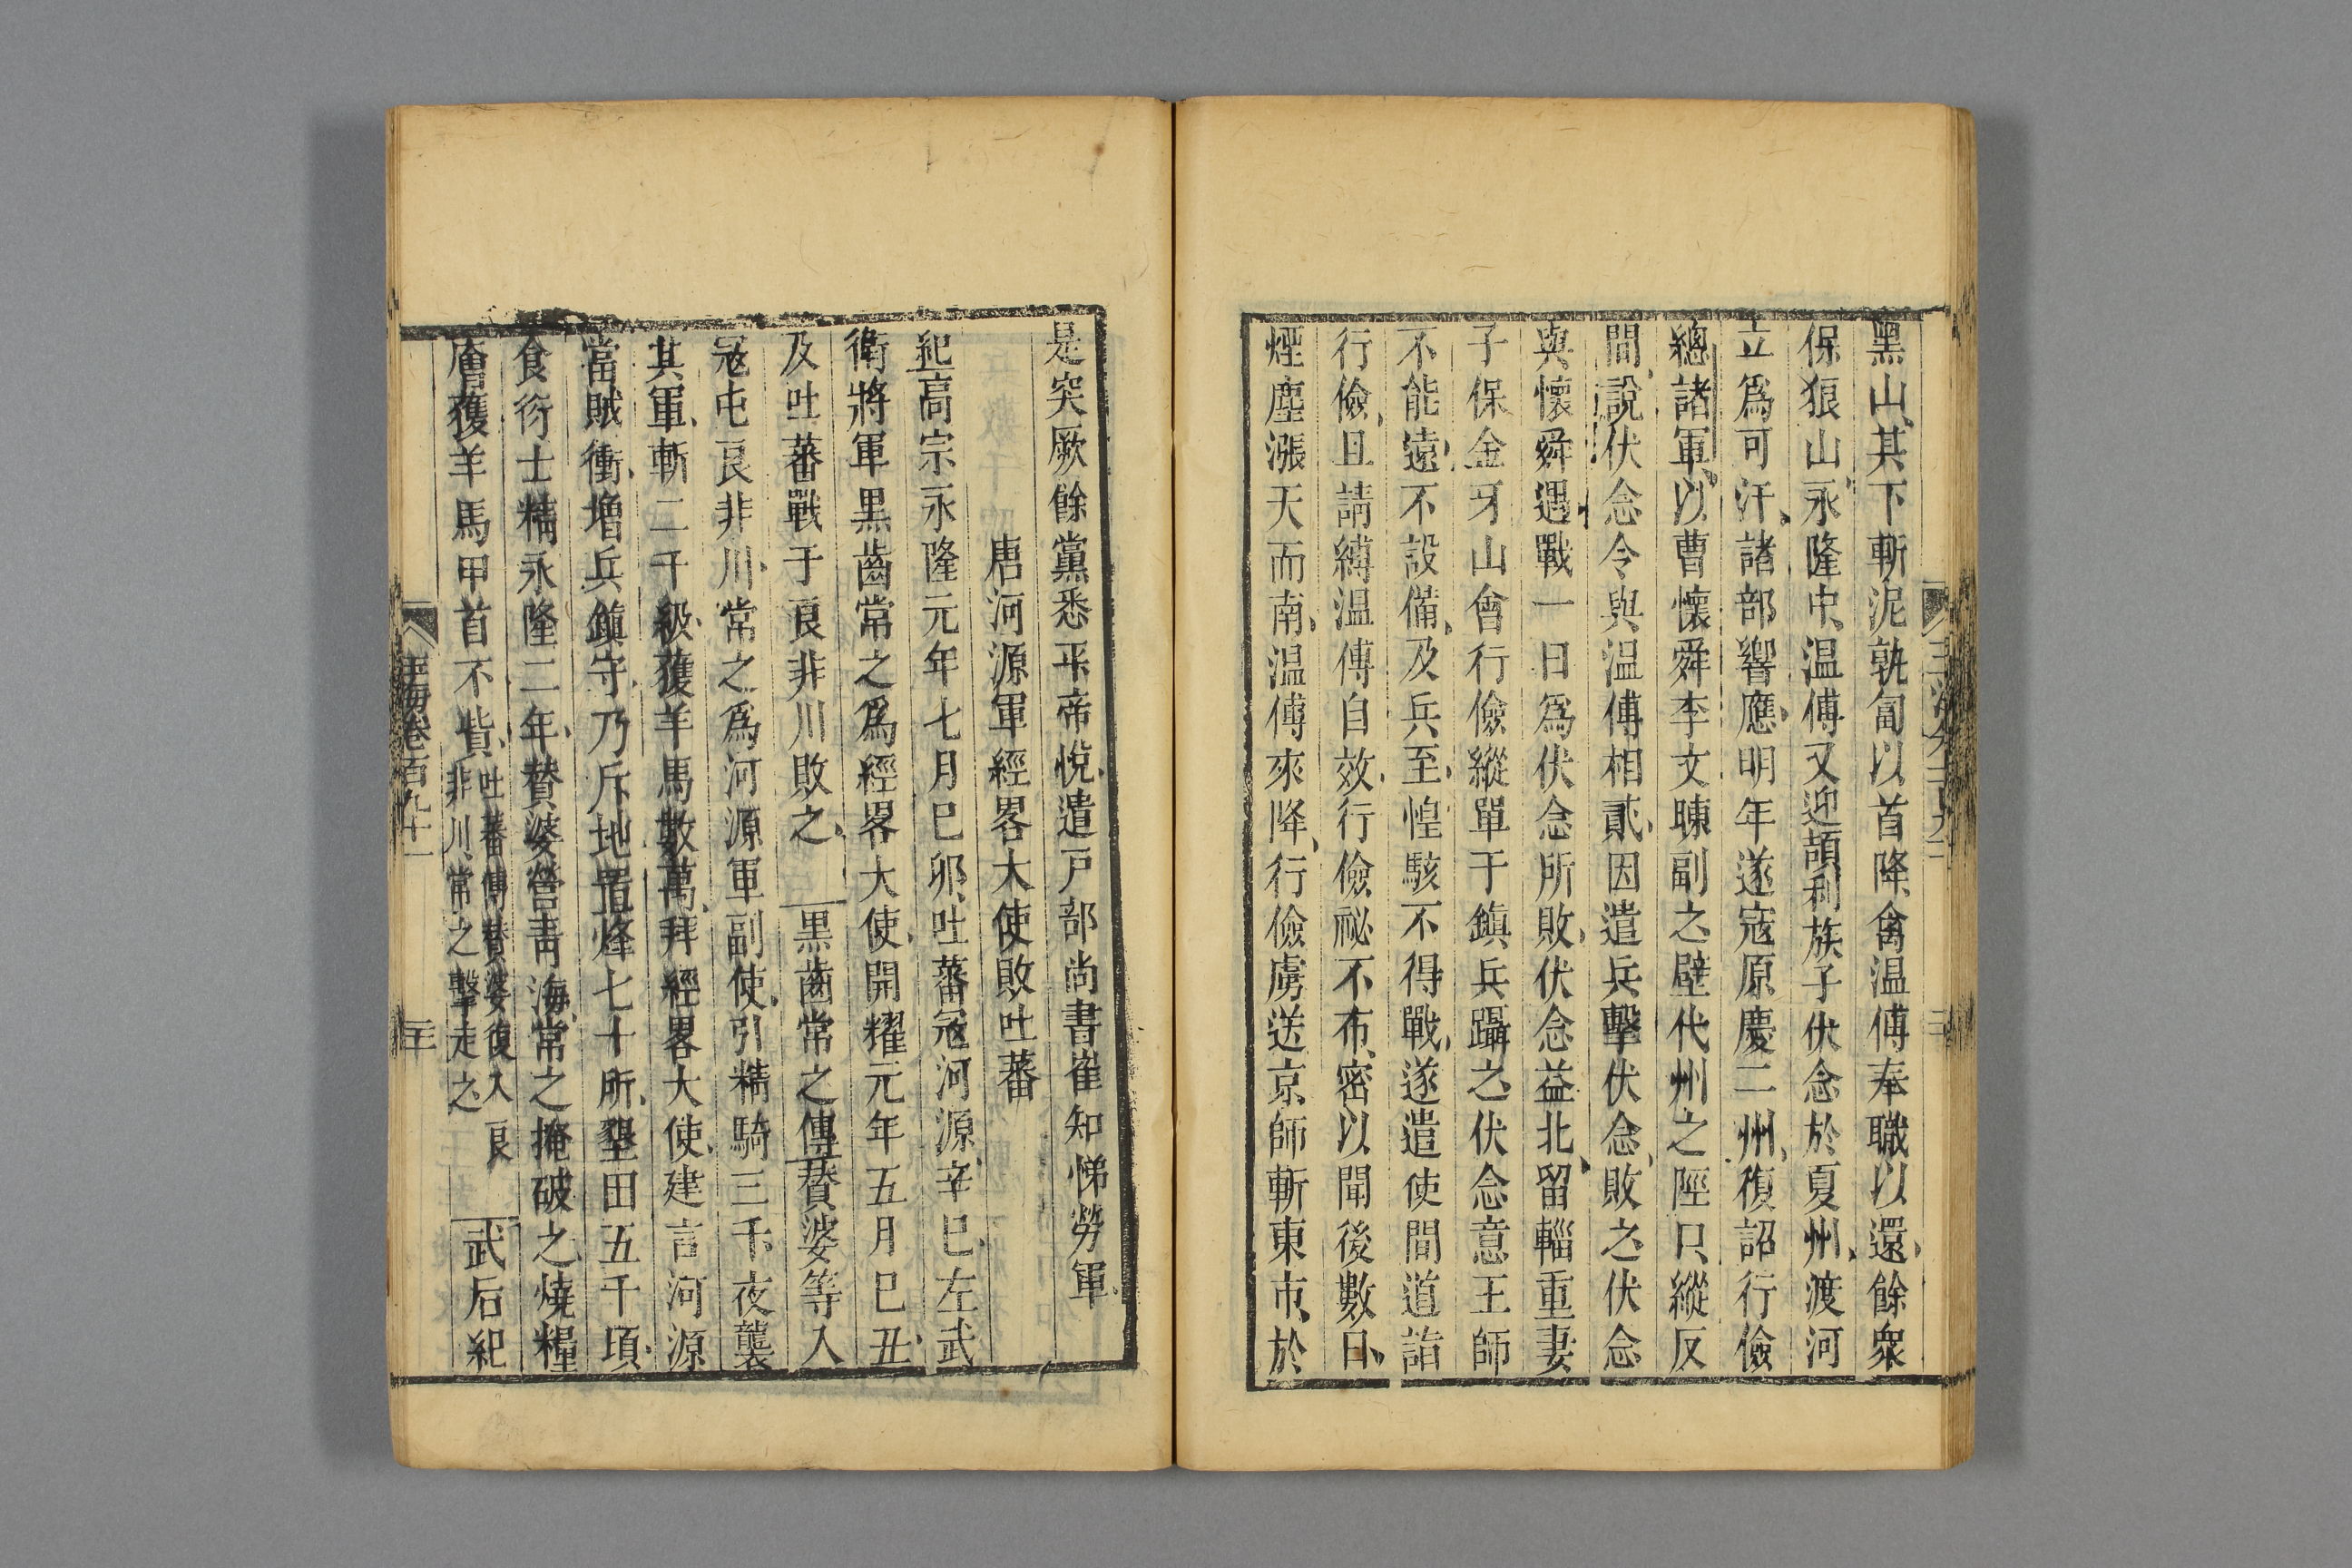 黑山其下斬泥孰匐以首降禽温傅奉職以還餘衆
保狼山永隆中温傅又迎頡利族子伏念於夏州渡河
立爲可汗諸部響應明年遂寇原慶二州復詔行儉
總諸軍以曹懷舜李文暕副之壁代州之陘口縱反
間說伏念令與温傅相貳因遣兵擊伏念敗之伏念
與懷舜遇戰一日爲伏念所敗伏念益北留輜重妻
子保金牙山會行儉縱單于鎮兵躡之伏念意王師
不能遠不設備及兵至惶駭不得戰遂遣使間道詣
行儉且請縛温傅自效行儉祕不布密以聞後數日
煙塵漲天而南温傅來降行儉虜送京師斬東市於
是突厥餘黨悉平帝悅遣戸部尚書崔知悌勞軍
唐河源軍經畧大使敗吐蕃
紀高宗永隆元年七月巳卯吐蕃寇河源辛巳左武
衛將軍黑齒常之爲經畧大使開耀元年五月巳丑
及吐蕃戰于良非川敗之 黑齒常之傳賛婆等入
寇屯良非川常之爲河源軍副使引精騎三千夜襲
其軍斬二千級獲羊馬數萬拜經畧大使建言河源
當賊衝增兵鎮守乃斥地置烽七十所墾田五千頃
食衍士精永隆二年賛婆營青海常之掩破之燒糧
廥獲羊馬甲首不貲 吐蕃傳賛婆復入良
非川常之擊走之 武后紀
玉海卷百九十一
二十